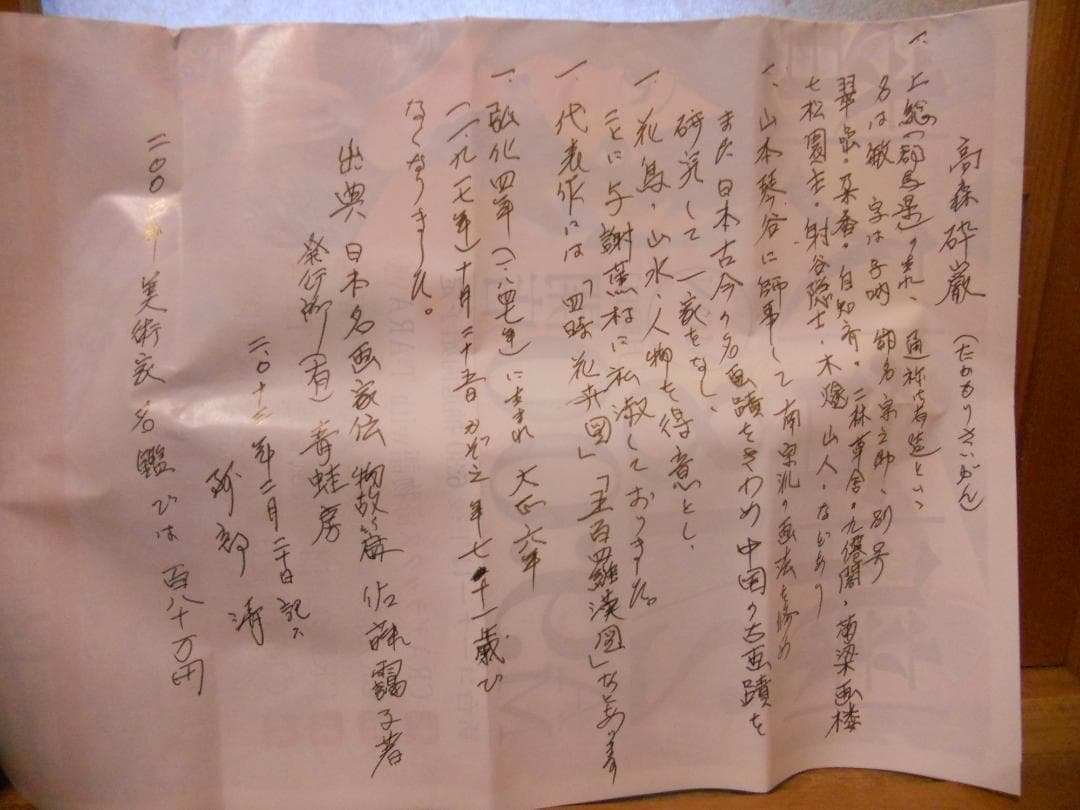 高森砕巌 (たかもりさいがん)
一、上総(群馬県)の生れ、通称 という
名は敏 字は子訥 別号
翠嵒・ 自知斎。二林草舎。九僊閣・南梁画楼
七松園主。射谷隠士。木燧山人。などあり
一、山本琴谷に師事して南宗派の画法を修め
また日本古今の名画蹟をきわめ中国の古画蹟を
研究して一家をなし、
一、花鳥、山水、人物を得意とし、
ことに与謝蕪村に私淑しておりました。
一、代表作には「四時花卉図」「五百羅漢図」などあります
一、弘化四年(一八四七年)に生まれ 大正六年
(一九一七年)十月二十五日 七十一歳で
なくなりました。
出典 日本名画家伝 物故篇 佐藤靄子著
発行所(有)青蛙房
二〇十二年二月二十日 記す
阿部 清
二〇〇 年美術家名鑑では 百八十万円